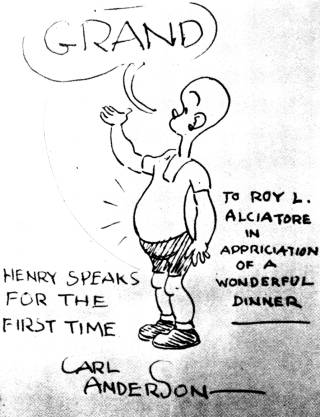 GRAND
TO ROY L.
ALCIATORE
IN
APPRICIATION
OF A
WONDERFUL
DINNER
HENRY SPEAKS
FOR THE
FIRST TIME
CARL
ANDERSON